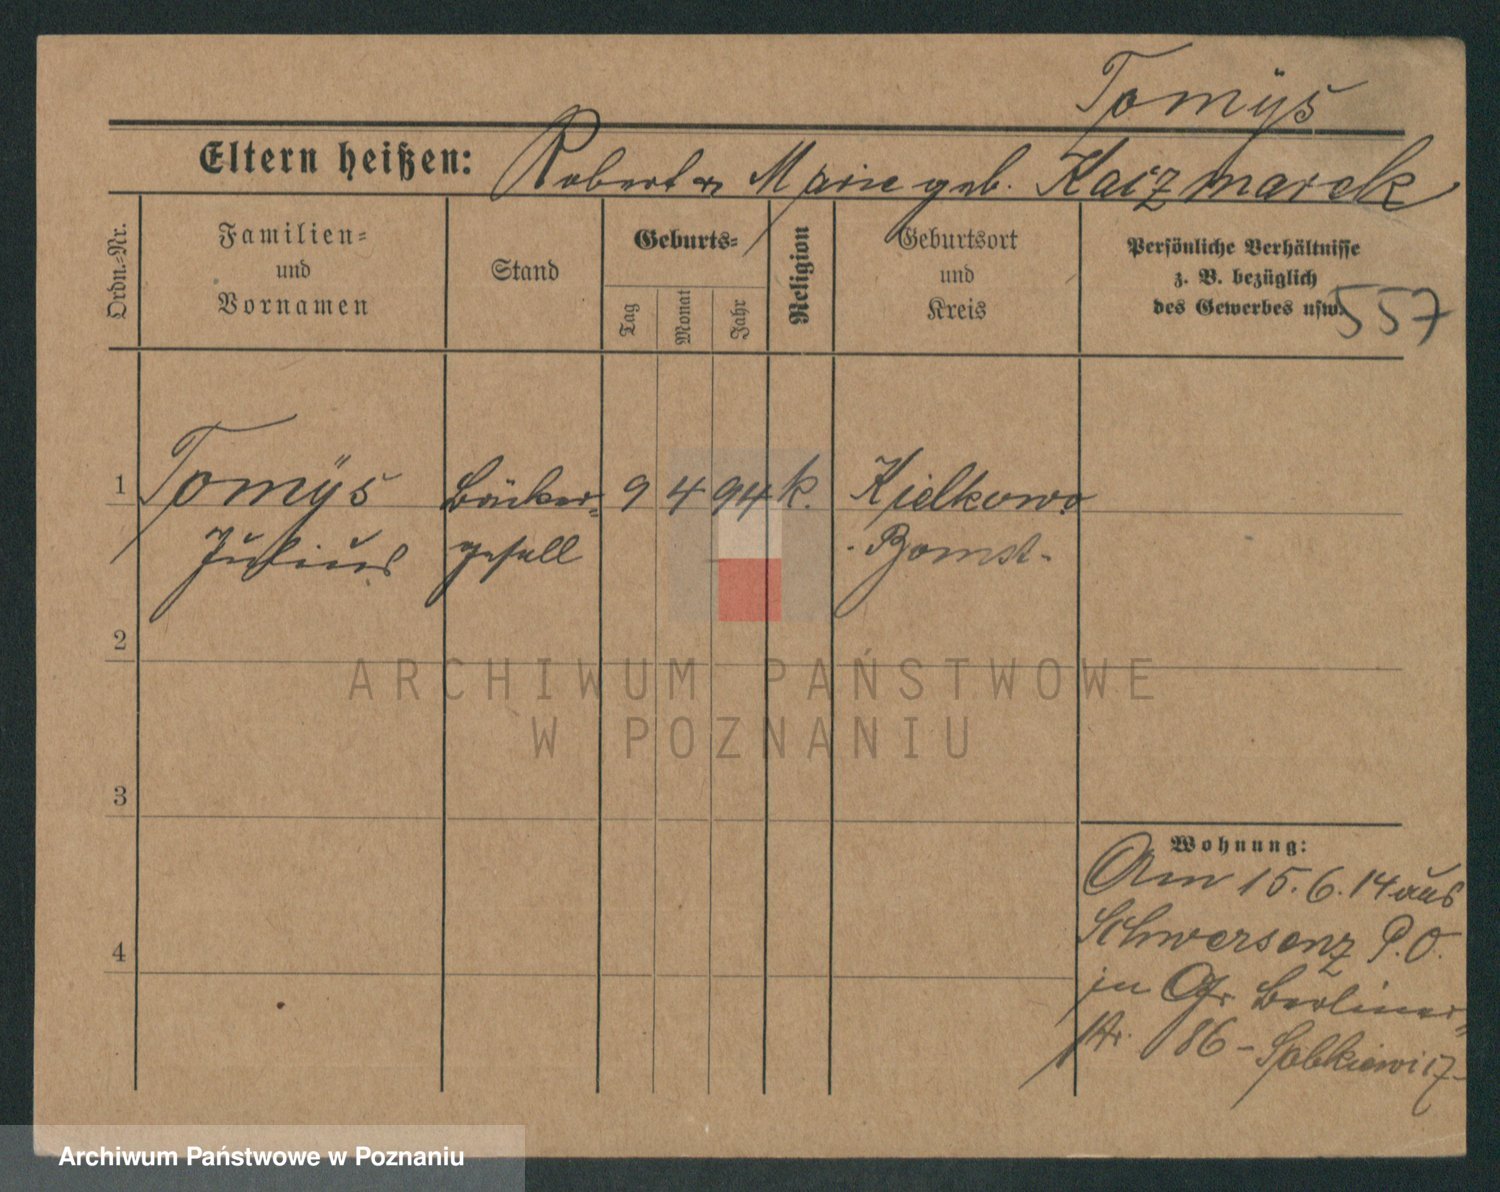 Tomÿs
Eltern heißen: Robert u Marie geb. Kaczmarek
Ordn.-Nr.
Familien-
und
Vornamen
Stand
Geburts-
Tag
Monat
Jahr
Religion
Geburtsort
und
Kreis
Persönliche Verhältnisse
z. B. bezüglich
des Gewerbes usw.
557
1 Tomÿs Bäcker- 9 4 94 k. Kielkowo
Julius gesell - Bomst -
2
ARCHIWUM PAŃSTWOWE
W POZNANIU
3
Wohnung:
Am 15.6.14 aus
Schwersenz P.O.
in Gr Berliner-
str. 86 - Sobkiewicz -
4
Archiwum Państwowe w Poznaniu